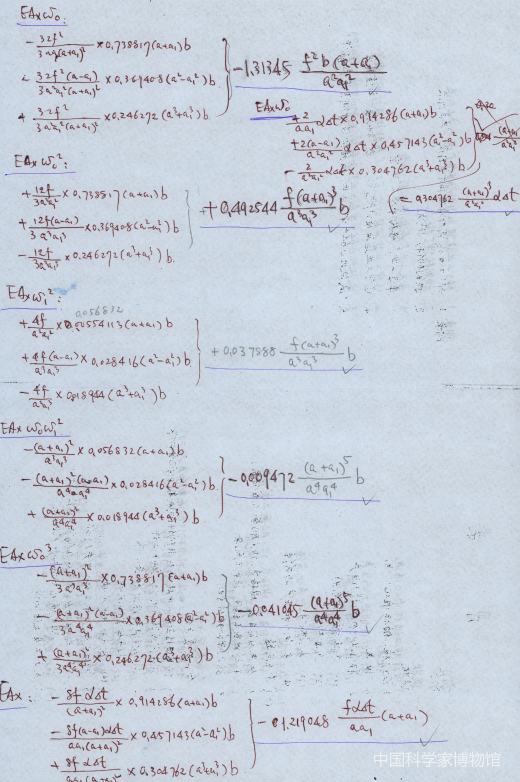 EA×ω₀:
- 32f²/3aa₁(a+a₁)² × 0.738817(a+a₁)b
- 32f²(a-a₁)/3a²a₁²(a+a₁)² × 0.369408(a²-a₁²)b
+ 32f²/3a²a₁²(a+a₁)² × 0.246272(a³+a₁³)b
-1.31345 f²b(a+a₁)/a²a₁²
EA×ω₀
+ 2/aa₁ αΔt × 0.914286(a+a₁)b
+ 2(a-a₁)/a²a₁² αΔt × 0.457143(a²-a₁²)b
- 2/a²a₁² αΔt × 0.304762(a³+a₁³)b
= 0.304762 (a+a₁)³/a²a₁² αΔt
EA×ω₀²:
+ 12f/3a²a₁² × 0.738817(a+a₁)b
+ 12f(a-a₁)/3a³a₁³ × 0.369408(a²-a₁²)b
- 12f/3a³a₁³ × 0.246272(a³+a₁³)b
+0.492544 f(a+a₁)³/a³a₁³ b
EA×ω₁²:
0.056832
+ 4f/a²a₁² × (a+a₁)b
+ 4f(a-a₁)/a³a₁³ × 0.028416(a²-a₁²)b
- 4f/a³a₁³ × 0.018944(a³+a₁³)b
+0.037888 f(a+a₁)³/a³a₁³ b
EA×ω₀ω₁²
- (a+a₁)²/a³a₁³ × 0.056832(a+a₁)b
- (a+a₁)²(a-a₁)/a⁴a₁⁴ × 0.028416(a²-a₁²)b
+ (a+a₁)²/a⁴a₁⁴ × 0.018944(a³+a₁³)b
-0.009472 (a+a₁)⁵/a⁴a₁⁴ b
EA×ω₀³
- (a+a₁)²/3a³a₁³ × 0.738817(a+a₁)b
- (a+a₁)²(a-a₁)/3a⁴a₁⁴ × 0.369408(a²-a₁²)b
+ (a+a₁)²/3a⁴a₁⁴ × 0.246272(a³+a₁³)b
-0.041045 (a+a₁)⁵/a⁴a₁⁴ b
EA×:
- 8fαΔt/(a+a₁)² × 0.914286(a+a₁)b
- 8f(a-a₁)αΔt/aa₁(a+a₁)² × 0.457143(a²-a₁²)b
+ 8fαΔt/aa₁(a+a₁)² × 0.304762(a³+a₁³)b
-1.219048 fαΔt/aa₁ (a+a₁)
中国科学家博物馆